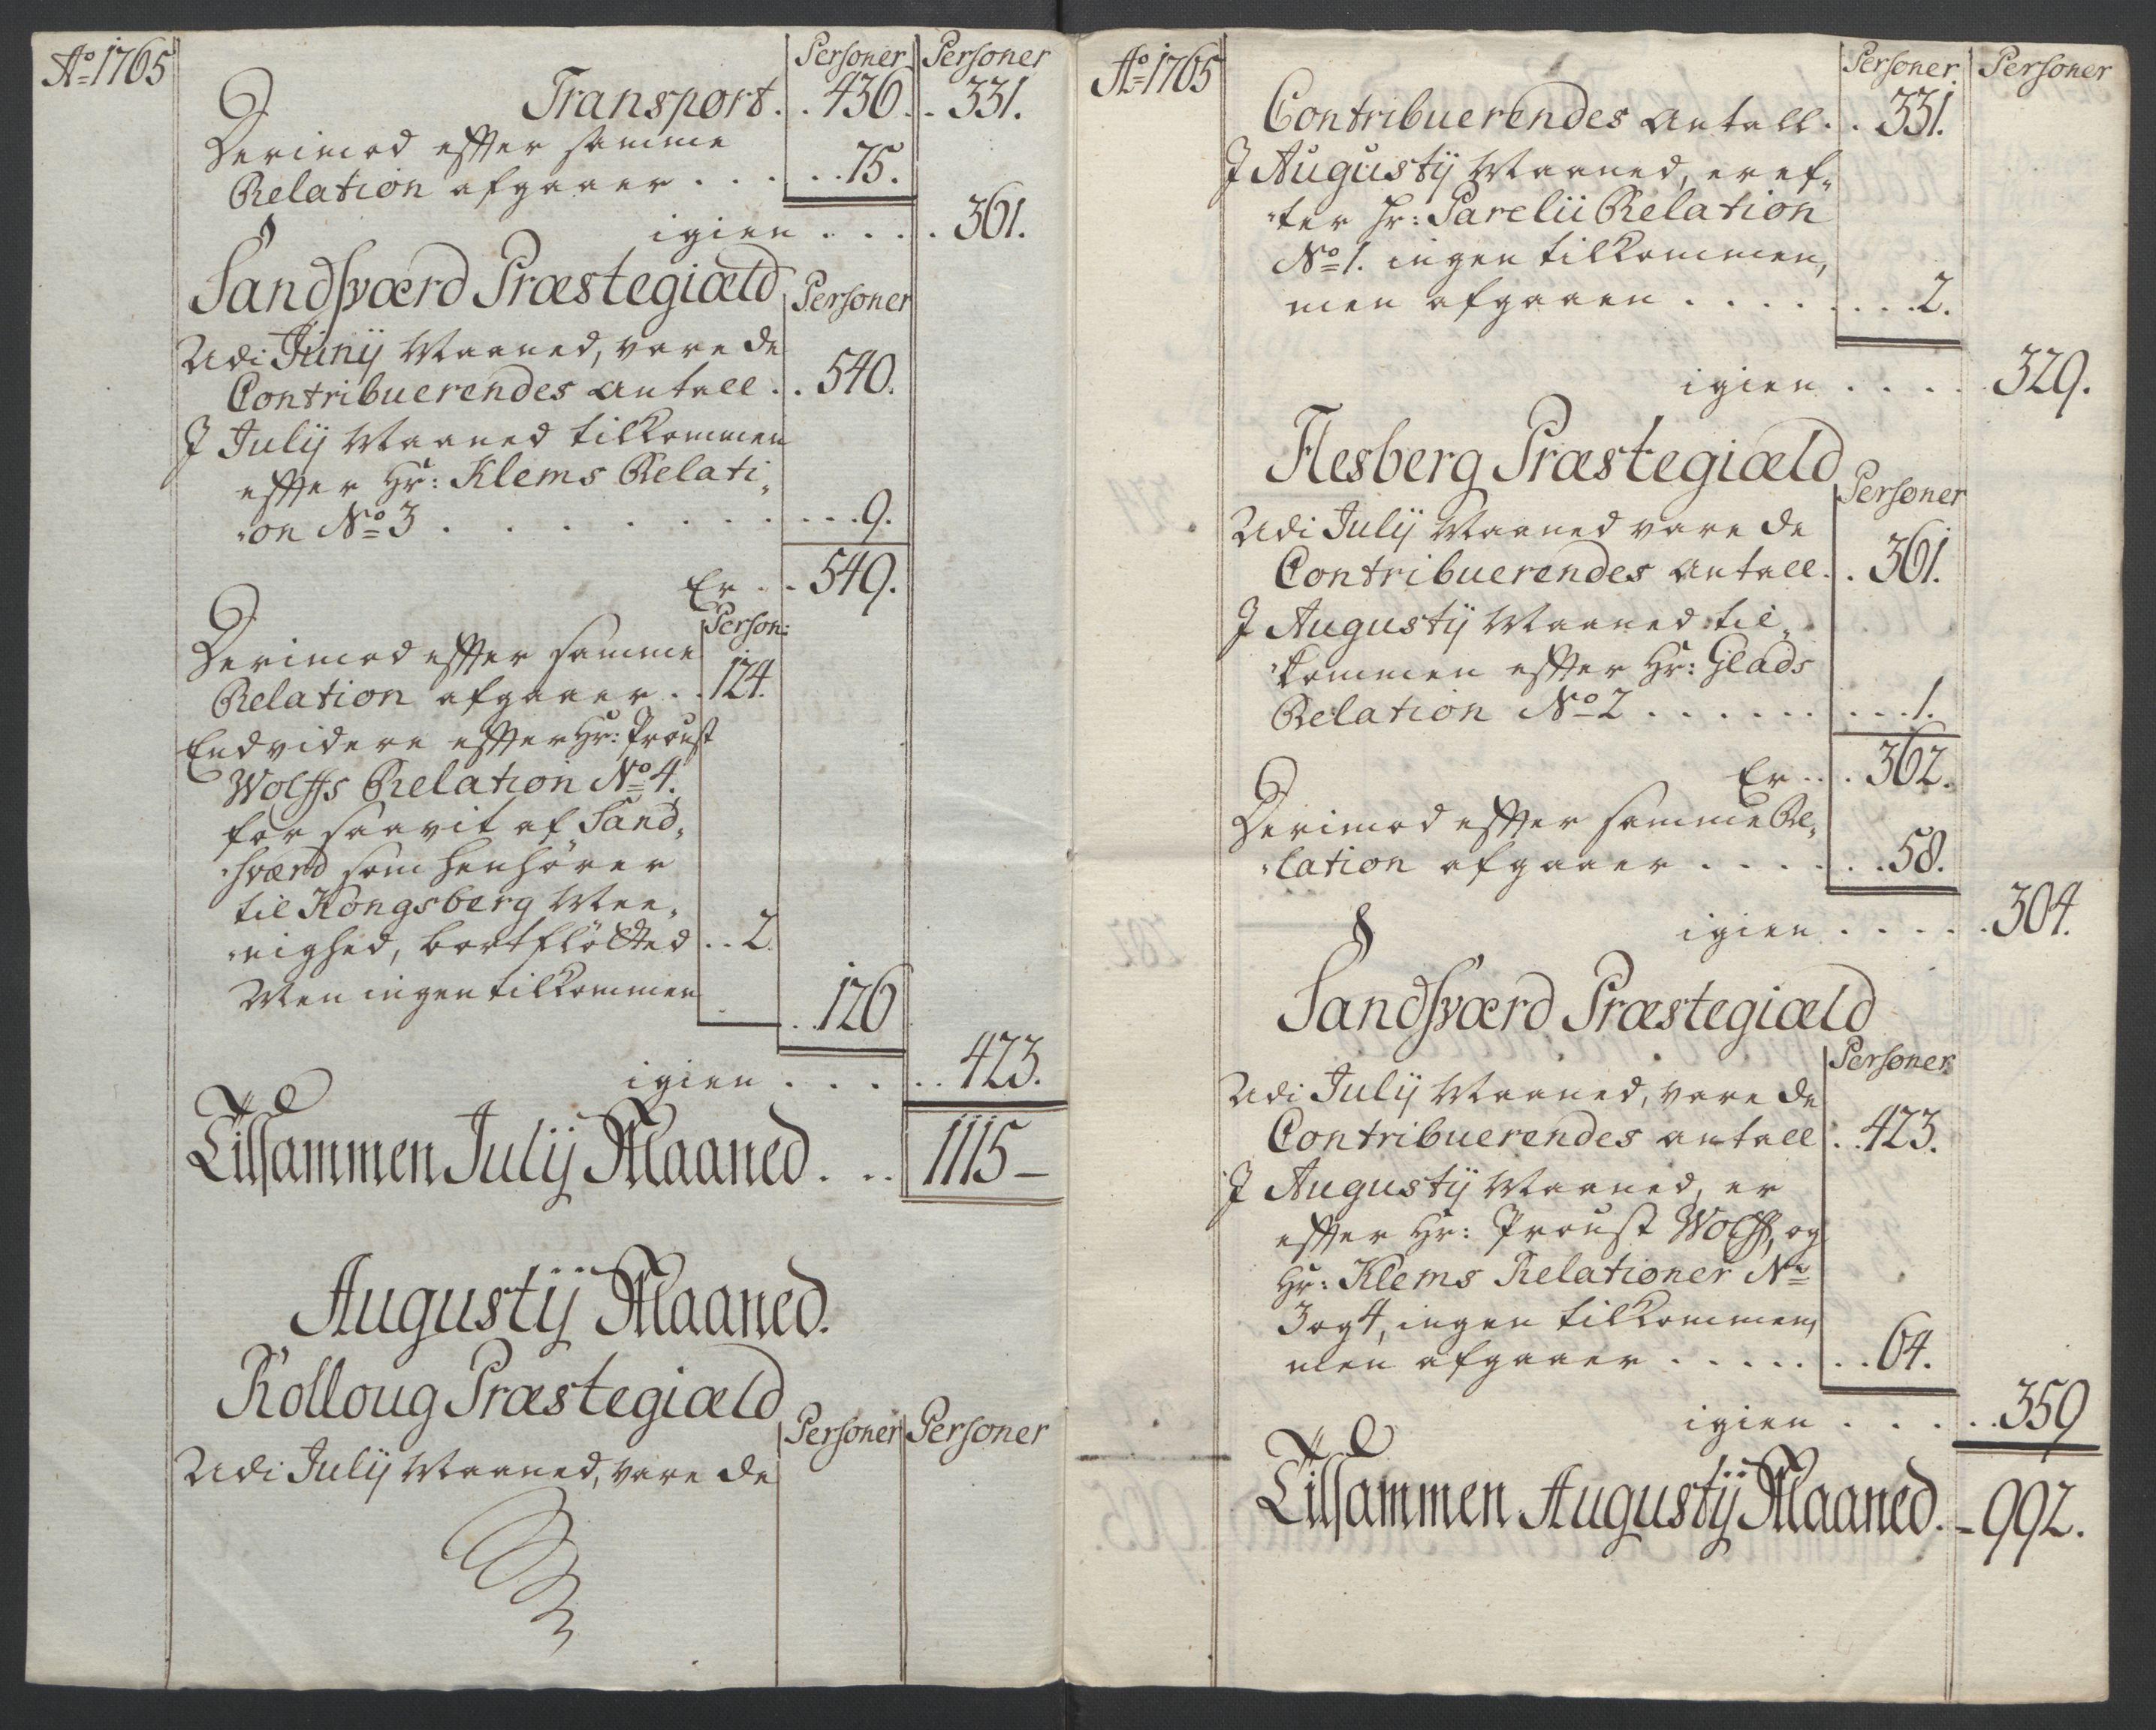 Ao 1765
Personer Personer
Transport . . 436. . 331.
Derimod effter samme
Relation afgaaer . . . . . 75.
igien . . . . 361.
Sandsværd Præstegiæld
Personer
Udi Junij Maaned, vare de
Contribuerendes Antall . . 540.
J Julij Maaned tilkommen
effter Hr: Klems Relati-
-on No 3 . . . . . . . . . . 9.
Er . . 549.
Person:
Derimod effter samme
Relation afgaaer . . 124.
Endvidere effter Hr: Proust
Wolffs Relation No 4.
for saavit af Sand-
-sværd som henhører
til Kongsberg Mee-
-nighed, bortfløtted . . 2.
Men ingen tilkommen
. . 126
igien . . . . . 423.
Tilsammen Julij Maaned . . . 1115 —
Augustij Maaned.
Rolloug Præstegiæld
Personer Personer
Udi Julij Maaned, vare de
Ao 1765
Personer Personer
Contribuerendes Antall . . 331.
J Augustij Maaned, er ef-
-ter Hr: Parelii Relation
No 1. ingen tilkommen,
men afgaaen . . . . . . . 2.
igien . . . . . 329.
Flesberg Præstegiæld
Personer
Udi Julij Maaned vare de
Contribuerendes Antall . . 361.
J Augustij Maaned til-
-kommen effter Hr: Glads
Relation No 2 . . . . . . . . 1.
Er . . . 362.
Derimod effter samme Re-
-lation afgaaer . . . . . . 58.
igien . . . . . 304.
Sandsværd Præstegiæld
Personer
Udi Julij Maaned, vare de
Contribuerendes antall . . 423.
J Augustij Maaned, er
effter Hr: Proust Wolff, og
Hr: Klems Relationer No
3 og 4, ingen tilkommen,
men afgaaer . . . . . . . 64.
igien . . . . . 359
Tilsammen Augustij Maaned. - 992.